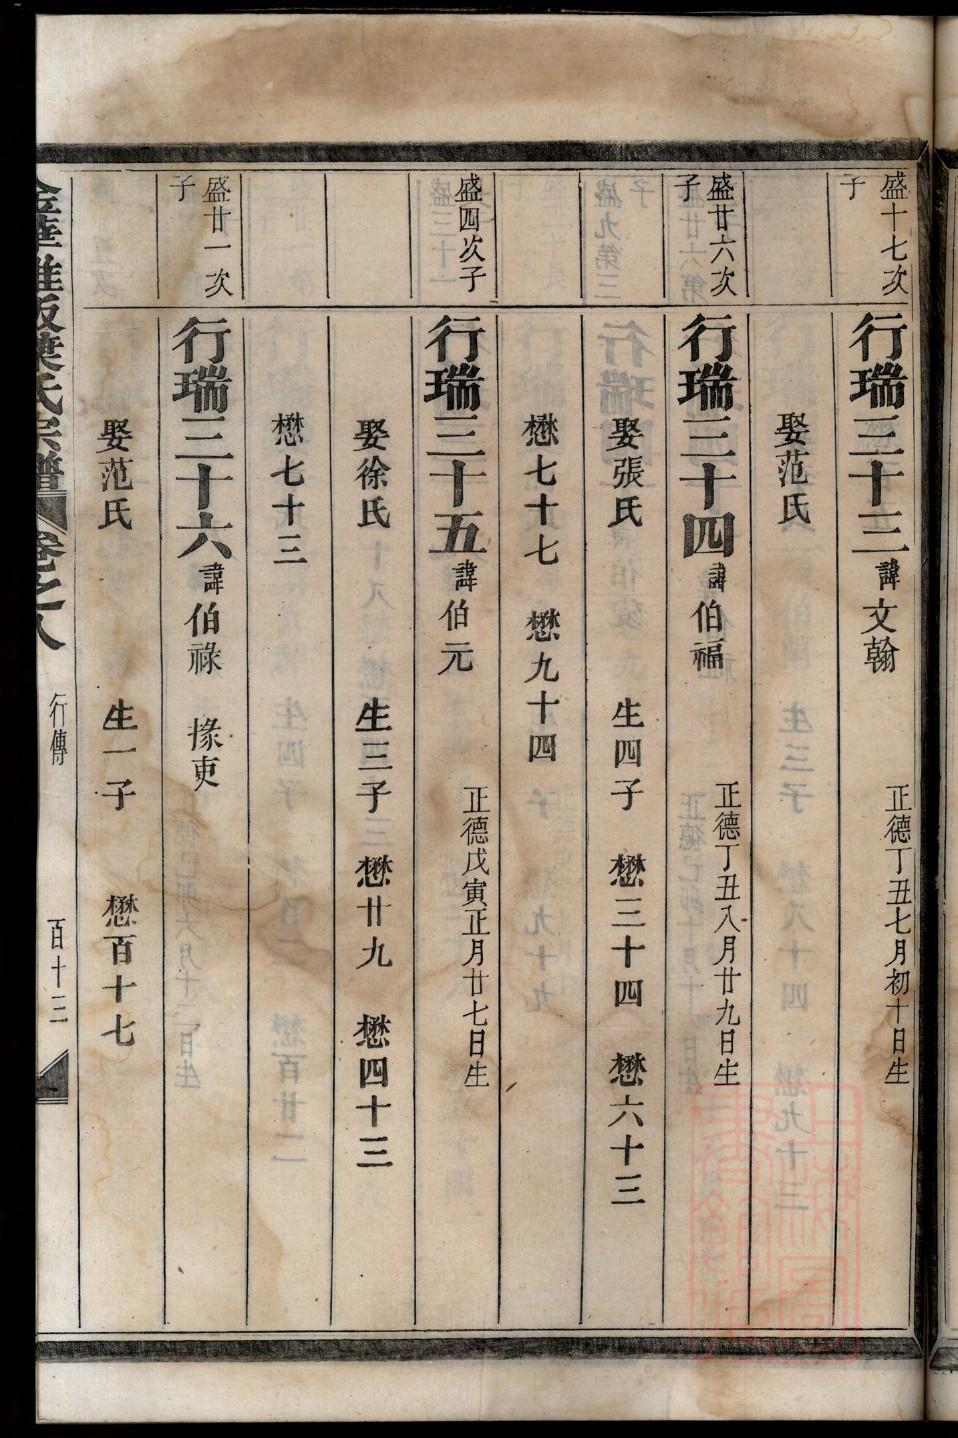 盛十七次
子
行瑞三十三諱文翰 正德丁丑七月初十日生
娶范氏
盛廿六次
子
行瑞三十四諱伯福 正德丁丑八月廿九日生
娶張氏 生四子 懋三十四 懋六十三
懋七十七 懋九十四
盛四次子
行瑞三十五諱伯元 正德戊寅正月廿七日生
娶徐氏 生三子 懋廿九 懋四十三
懋七十三
盛廿一次
子
行瑞三十六諱伯祿 掾吏
娶范氏 生一子 懋百十七
葉氏宗譜 卷之八 行傳 百十三